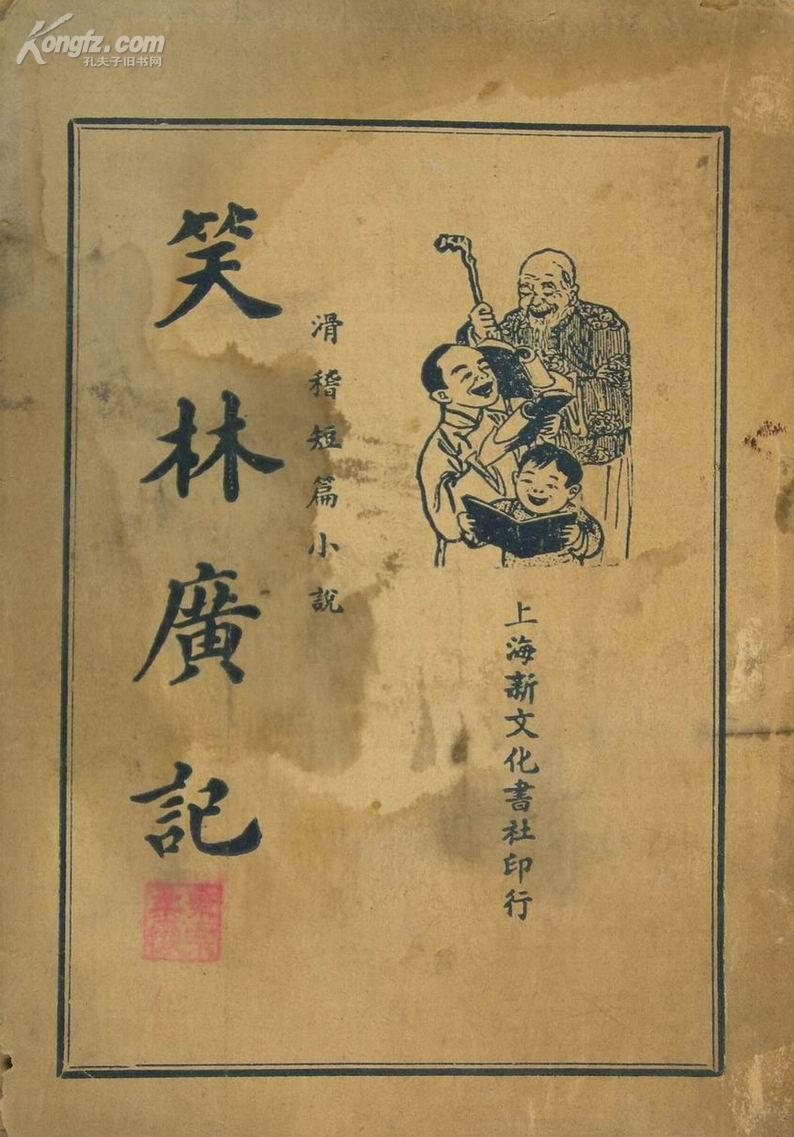 Kongfz.com
孔夫子旧书网
笑林廣記
滑稽短篇小說
上海新文化書社印行